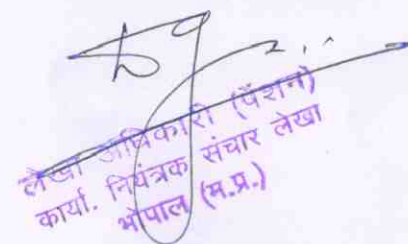 लेखा अधिकारी (पेंशन)
कार्या. नियंत्रक संचार लेखा
भोपाल (म.प्र.)